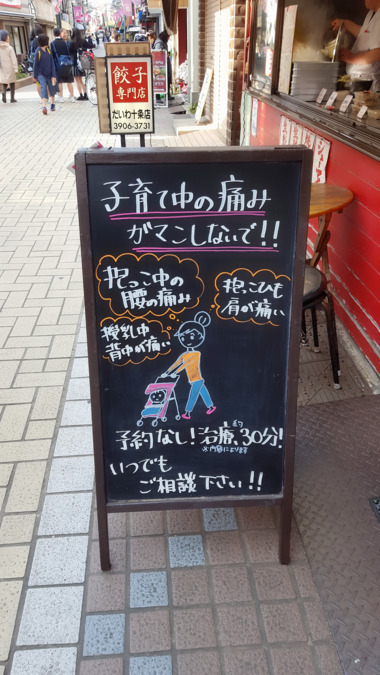 餃子
専門店
だいわ十条店
3906-3731
子育て中の痛み
ガマンしないで!!
抱っこ中の
腰の痛み
抱っこひも
肩が痛い
授乳中
背中が痛い
予約なし!治療、約30分!
※内容によります
いつでも
ご相談下さい!!